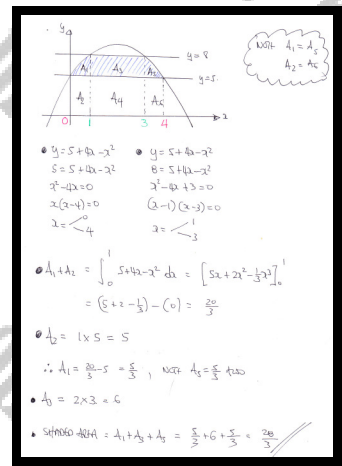 y
NOTE A₁ = A₅
A₂ = A₆
y=8
y=5
A₁ A₃ A₅
A₂ A₄ A₆
0 1 3 4 x
• y = 5 + 4x - x²
5 = 5 + 4x - x²
x² - 4x = 0
x(x-4) = 0
x = < 0 4
• y = 5 + 4x - x²
8 = 5 + 4x - x²
x² - 4x + 3 = 0
(x-1)(x-3) = 0
x = < 1 3
• A₁ + A₂ = ∫₀¹ 5+4x-x² dx = [5x + 2x² - ⅓x³]₀¹
= (5 + 2 - ⅓) - (0) = 20/3
• A₂ = 1 x 5 = 5
∴ A₁ = 20/3 - 5 = 5/3 , NOTE A₅ = 5/3 ALSO
• A₃ = 2 x 3 = 6
• SHADED AREA = A₁ + A₃ + A₅ = 5/3 + 6 + 5/3 = 28/3